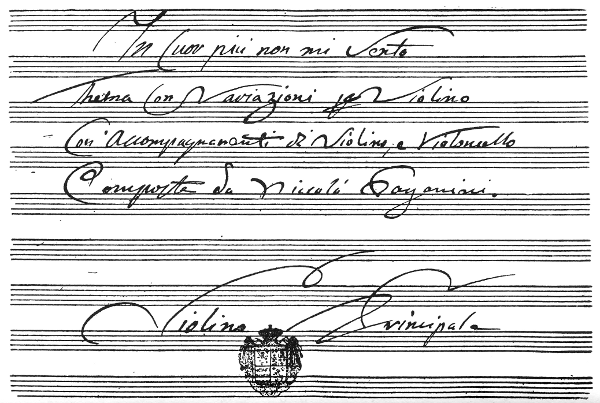 In Cuor più non mi Sento
Thema Con Variazioni per Violino
Con Accompagnamenti di Violino, e Violoncello
Composte da Niccolò Paganini.
Violino Principale